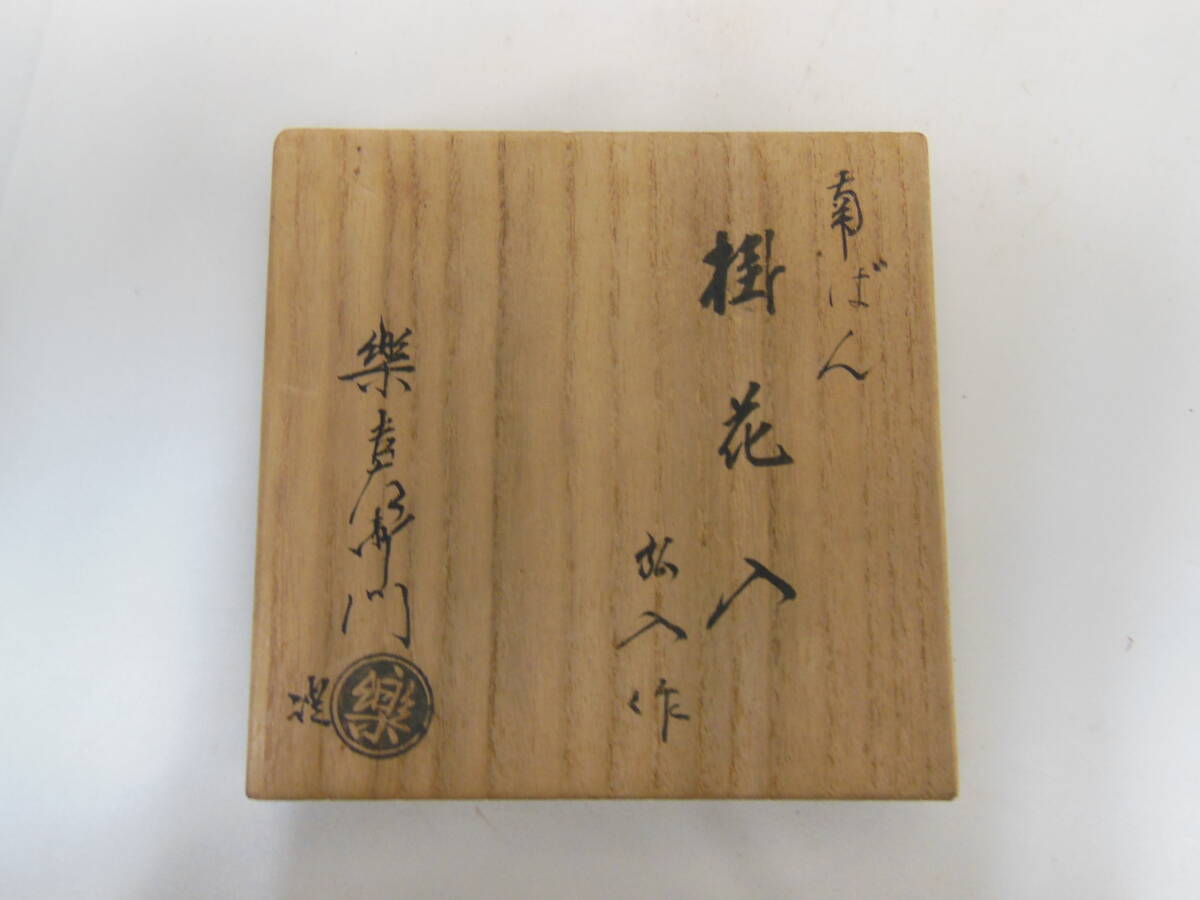 南ばん
掛花入
弘入作
樂吉左衛門
樂